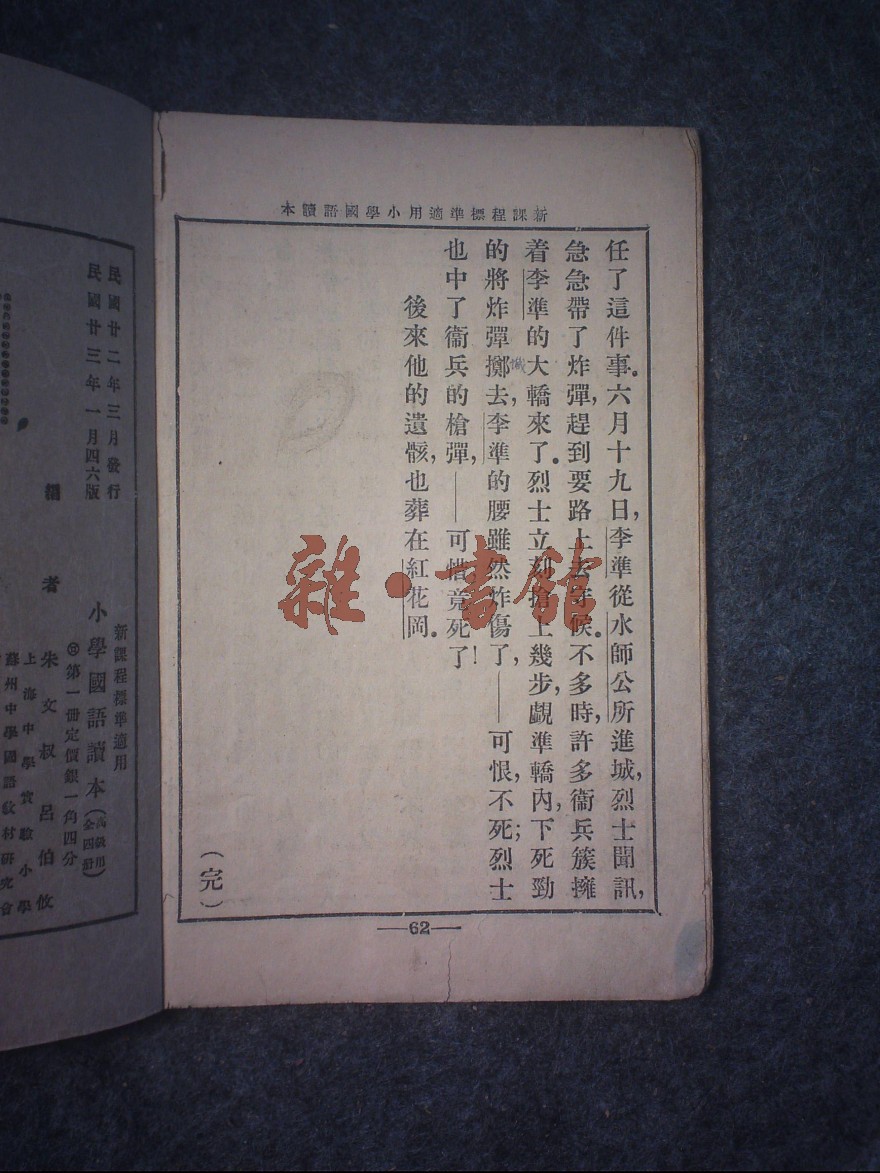 新課程標準適用小學國語讀本
任了這件事。六月十九日，李準從水師公所進城，烈士聞訊，
急急帶了炸彈，趕到要路上去守候。不多時，許多衞兵簇擁
着李準的大轎來了。烈士立刻搶上幾步，覷準轎內，下死勁
的將炸彈擲去，李準的腰雖然炸傷了，——可恨，不死；烈士
也中了衞兵的槍彈，——可惜竟死了！
後來他的遺骸，也葬在紅花岡。
（完）
—62—
雜·書館
新課程標準適用
小學國語讀本（高級用全四冊）
第一冊定價銀一角四分
民國廿二年三月發行
民國廿三年一月四六版
編者
朱文叔 呂伯攸
上海中學實驗小學
蘇州中學國語教材研究會